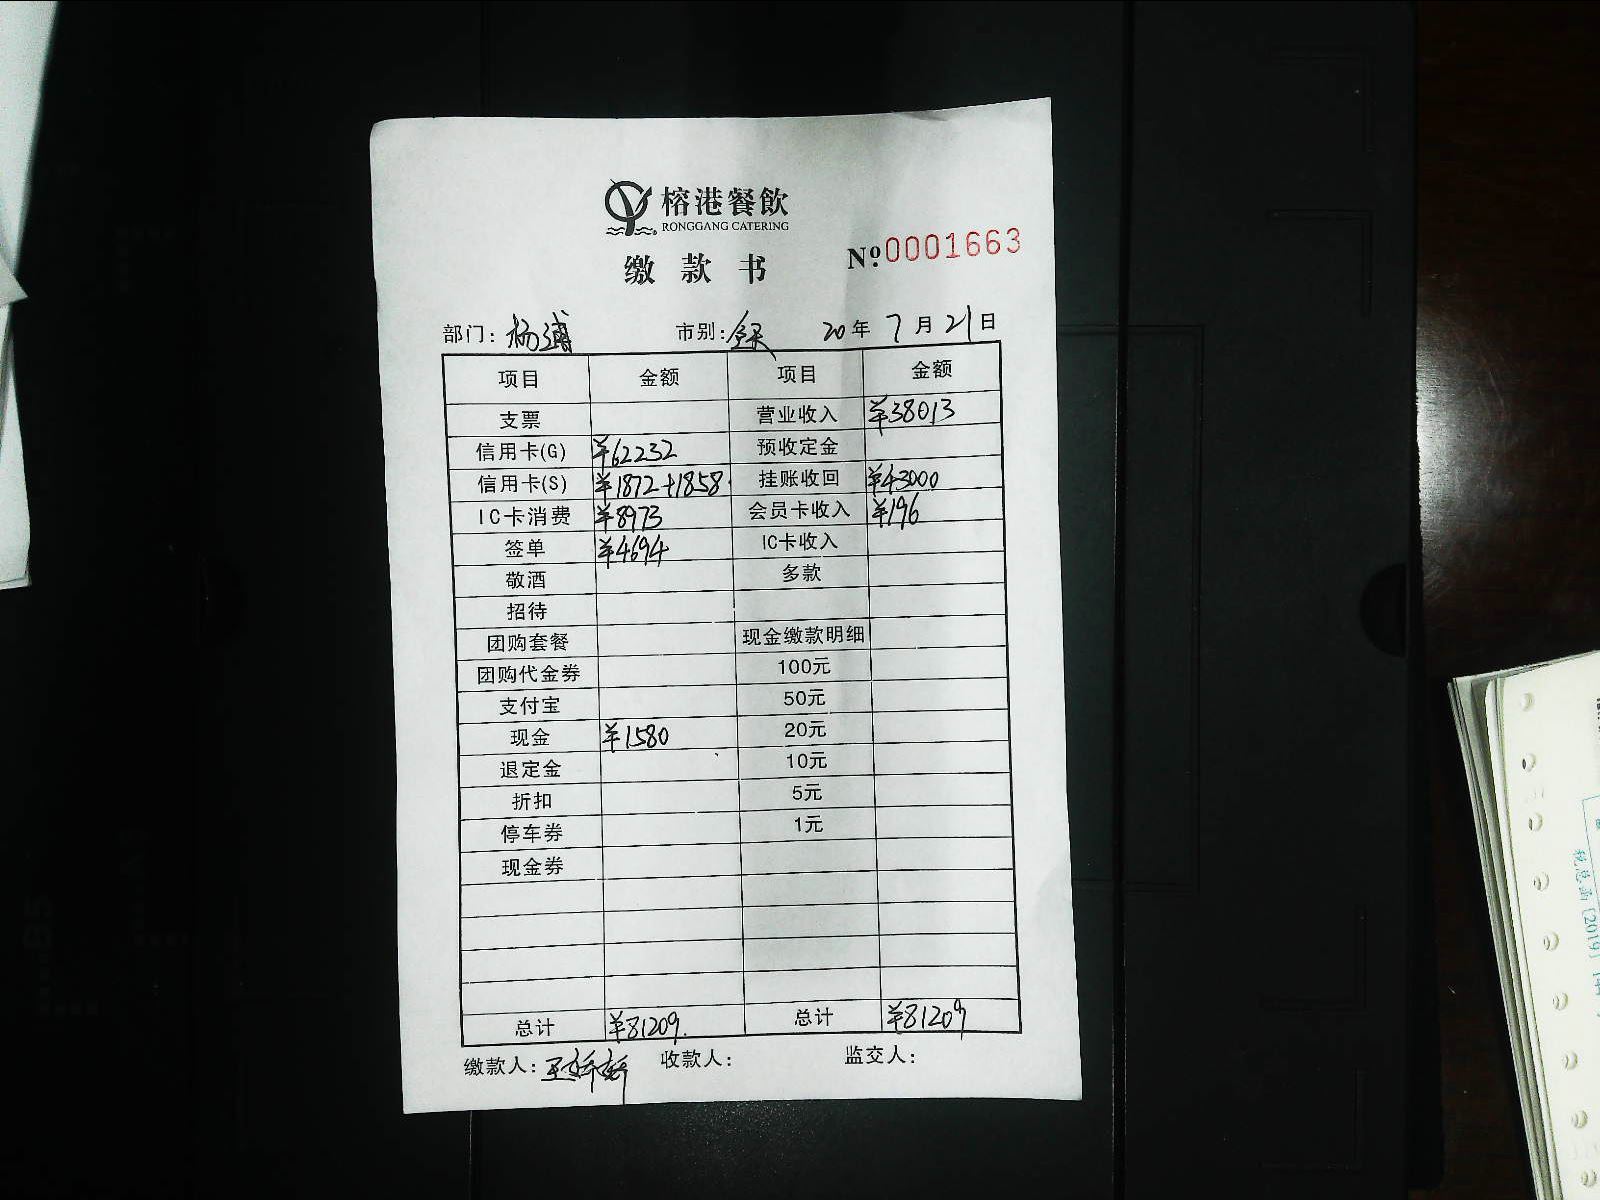 榕港餐飲
RONGGANG CATERING
缴款书
Nº0001663
部门：杨浦 市别：全天 20年7月21日
项目 金额 项目 金额
支票 营业收入 ¥38013
信用卡(G) ¥62232 预收定金
信用卡(S) ¥1872+1858 挂账收回 ¥43000
IC卡消费 ¥8973 会员卡收入 ¥196
签单 ¥4694 IC卡收入
敬酒 多款
招待
团购套餐 现金缴款明细
团购代金券 100元
支付宝 50元
现金 ¥1580 20元
退定金 10元
折扣 5元
停车券 1元
现金券
总计 ¥81209. 总计 ¥81209
缴款人： 收款人： 监交人：
[2019]